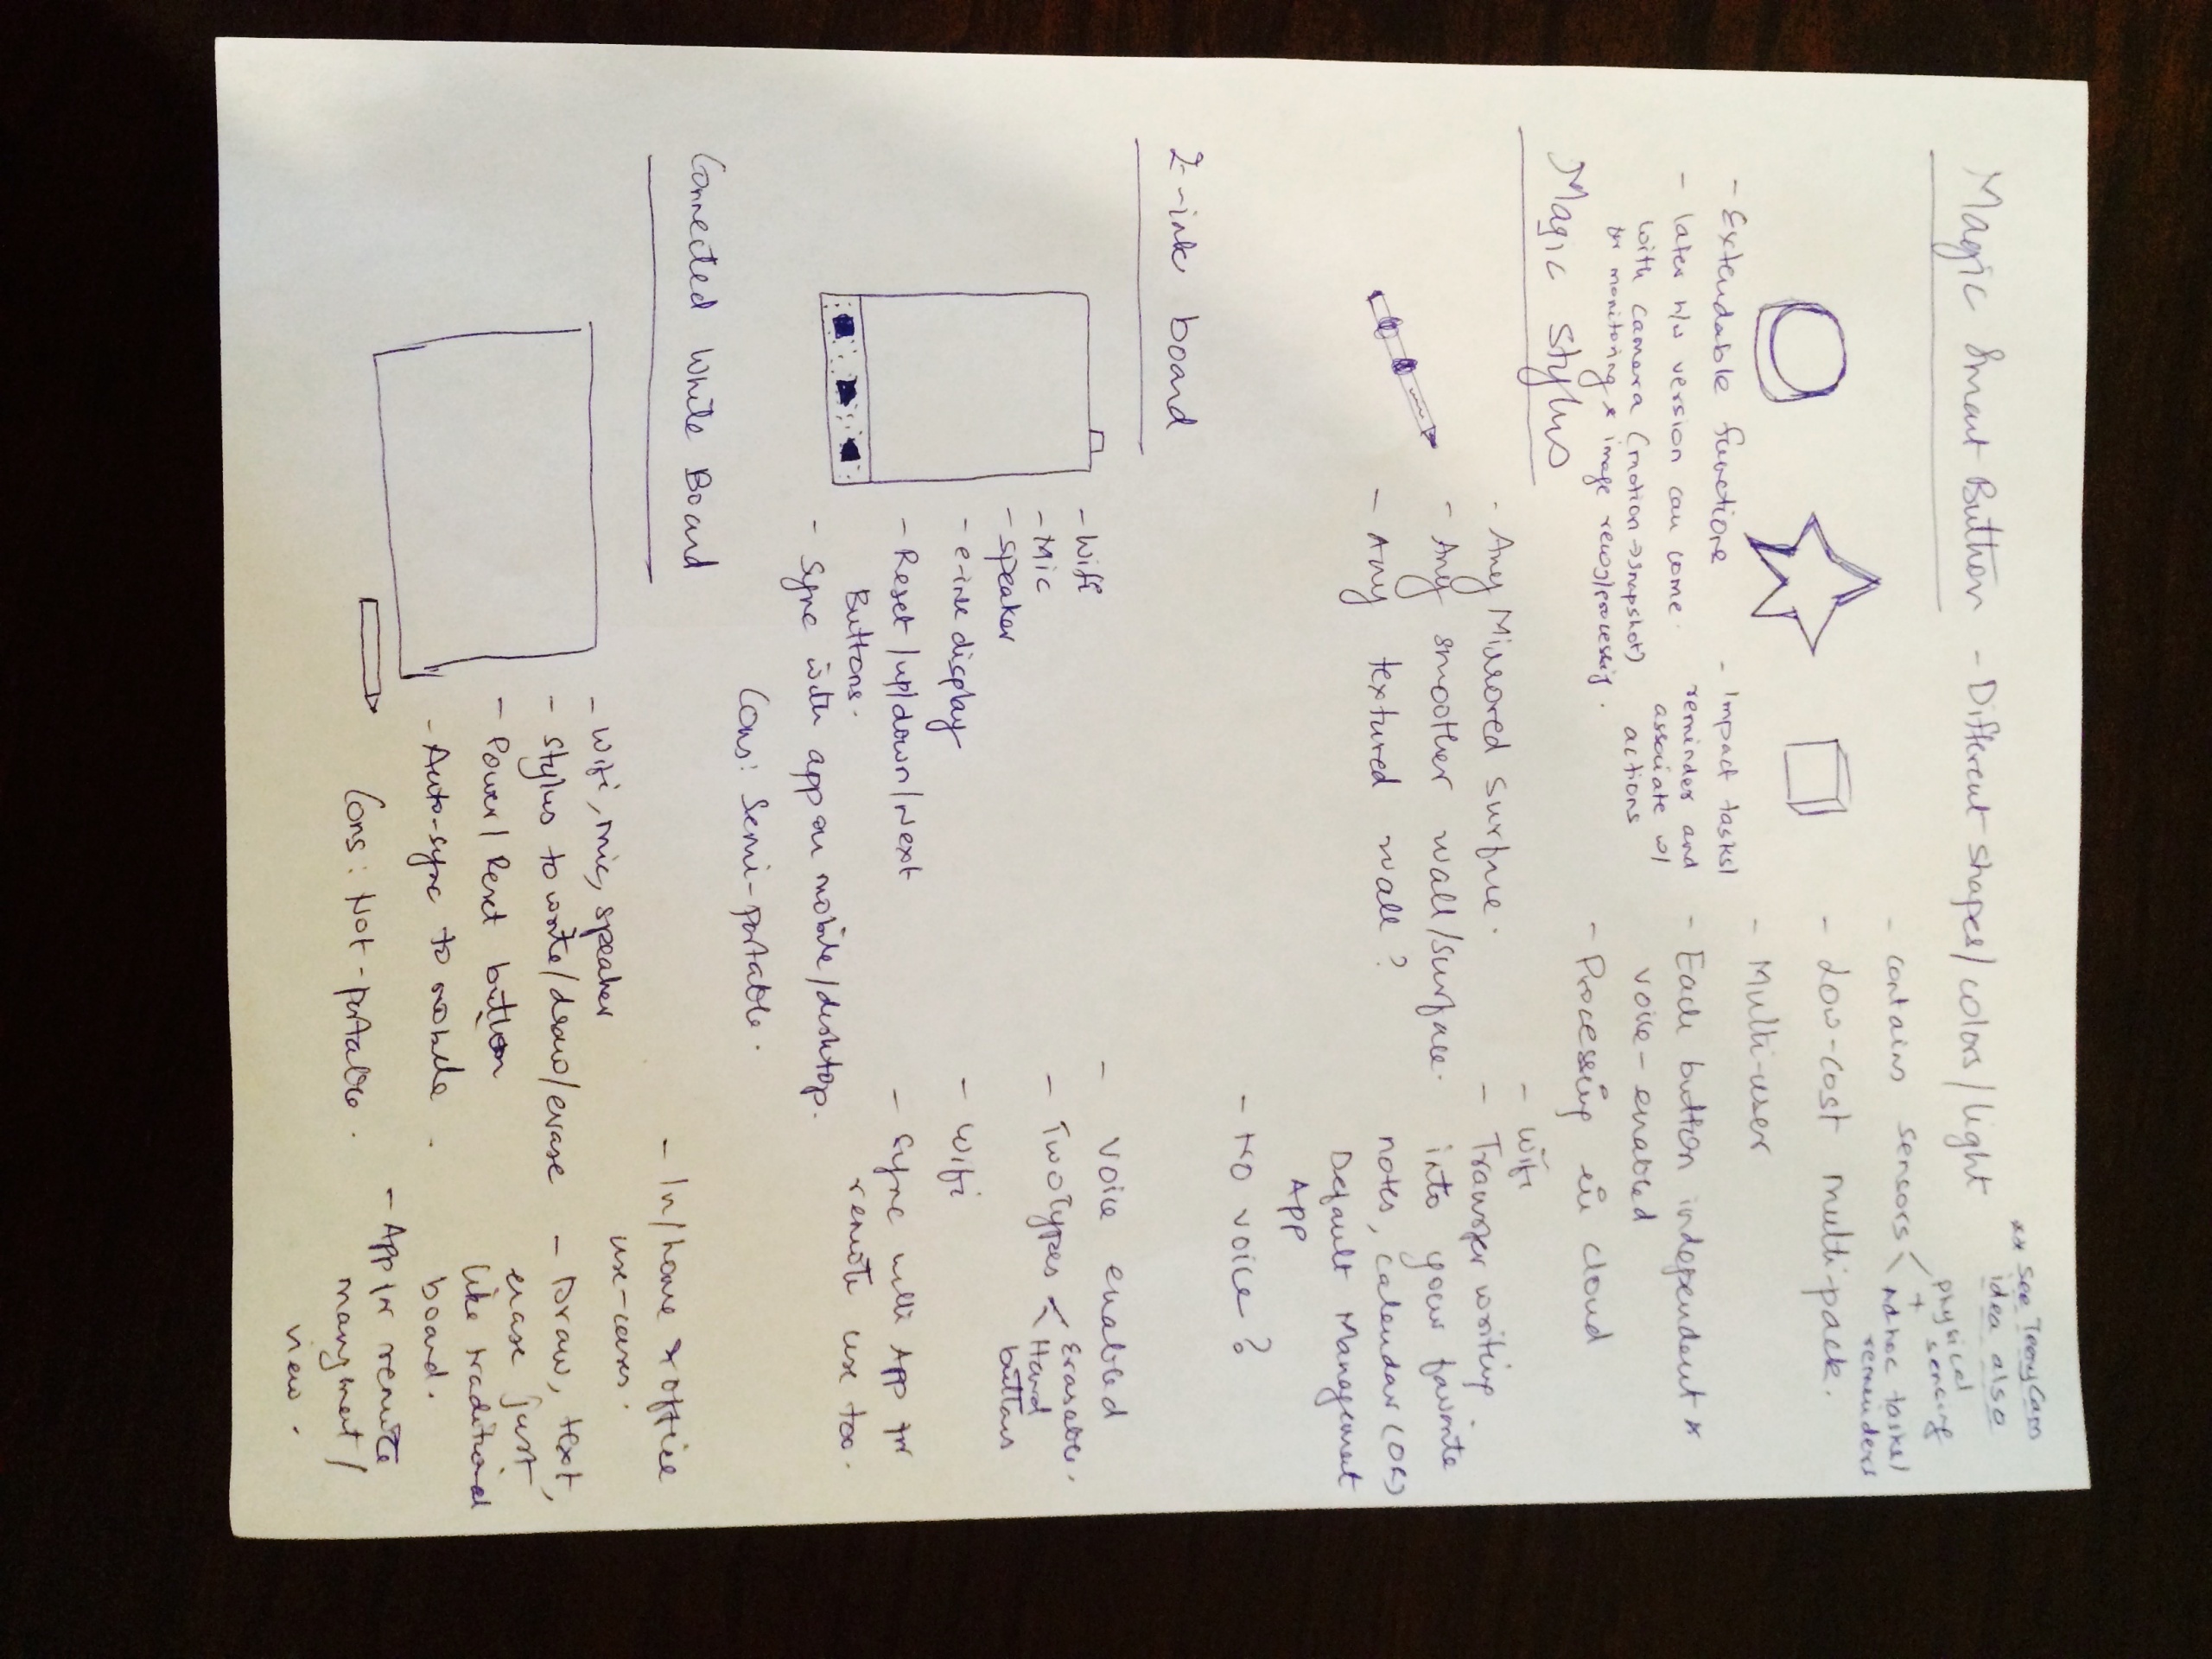 ** See TonyCam
idea also
Magic Smart Button - Different shapes/colors/light
- contains sensors < physical sensing
+
Adhoc tasks/
reminders
- Low-cost multi-pack.
- Multi-user
- Each button independent &
voice-enabled
- Processing in cloud
- Extendable functions
- later h/w version can come
with camera (motion → snapshot)
for monitoring & image recog/processing.
- Impact tasks/
reminder and
associate w/
actions
Magic Stylus
- Any Mirrored surface.
- Any smoother wall/surface.
- Any textured wall?
- Wifi
- Transfer writing
into your favorite
notes, calendar (OR)
Default Management
App
- No voice?
2-ink board
- Wifi
- Mic
- speaker
- e-ink display
- Reset/up/down/Next
Buttons.
- Sync with app on mobile/desktop.
Cons: Semi-portable.
- Voice enabled
- Two Types < Erasable,
Hard
buttons
- Wifi
- Sync with App for
remote use too.
Connected White Board
- Wifi, mic, speaker
- stylus to write/draw/erase
- Power/Reset button
- Auto-sync to mobile.
Cons: Not-portable.
- In/home & office
use-cases.
- Draw, text,
erase just
like traditional
board.
- App for remote
management/
view.